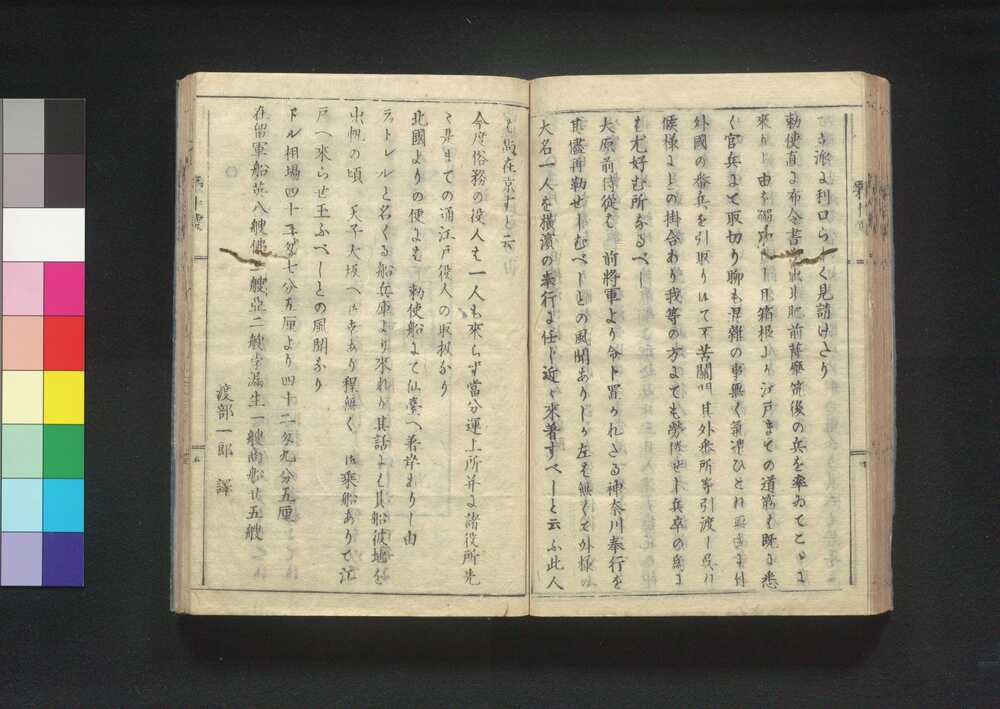 も派よ利口らしく見請けたり
勅使直よ布令書 出し肥前薩摩筑後の兵を率ゐてこゝよ
來りし由を 箱根より江戸までの道筋も既よ悉
く官兵よて取切り聊も混雜の事無く
外國の番兵を引取りて不苦關門其外番所等引渡し呉
候樣よとの掛合あり我等の方よても勞 せし兵卒の爲よ
も尤好む所なるべし
大原前侍從も 前將軍より命ト置かれたる神奈川奉行を
其儘再勤せしむべしとの風聞ありしが左も無くて外樣の
大名一人を横濱の奉行よ任し近々來着すべしと云ふ此人
も尚在京すと云
今度俗務の役人も一人も來らず當分運上所并よ諸役所先
是までの通江戸役人の取扱なり
北國よりの便よも 勅使船よて仙臺へ着岸ありし由
ラトレルと名くる船兵庫より來れり其話よも其船彼地を
出帆の頃 天子大坂へ 幸あり程無く 乘船ありて江
戸へ來らせ玉ふべしとの風聞なり
ドル相場四十五匁七分五厘より四十二匁九分五厘
在留軍船英八艘佛二艘亞二艘孛漏生一艘商船廿五艘
渡部一郎 譯